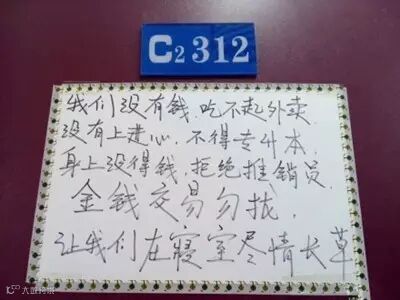 C2312
我们没有钱.吃不起外卖.
没有上进心.不得专升本.
身上没得钱.拒绝推销员.
金钱交易勿扰.
让我们在寝室尽情长草